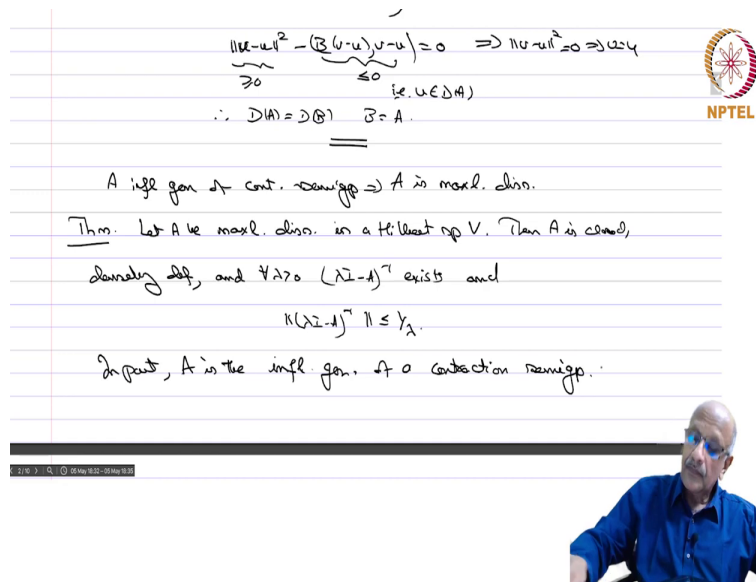 ‖v-u‖² - (B(v-u), v-u) = 0 ⇒ ‖v-u‖² = 0 ⇒ v=u
≥0 ≤0
i.e. u ∈ D(A)
∴ D(A) = D(B) B = A.
NPTEL
A infl gen of cont. semigp ⇒ A is maxl. diss.
Thm. Let A be maxl. diss. in a Hilbert sp V. Then A is closed,
densely def, and ∀λ>0 (λI-A)⁻¹ exists and
‖(λI-A)⁻¹‖ ≤ 1/λ.
In part, A is the infl. gen. of a contraction semigp.
2/10 05 May 18:32 - 05 May 18:35